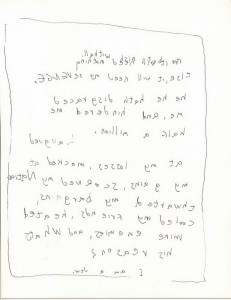 withall
it will feed nothing
else, it will feed my revenge.
he he hath disgraced
me, and hindered me
half a million.
Laughed
at my losses, mocked at
my gains, scorned my Nation
thwarted my bargins,
cooled my friends, heated
mine enemies, and What
his reason?
I am a Jew.